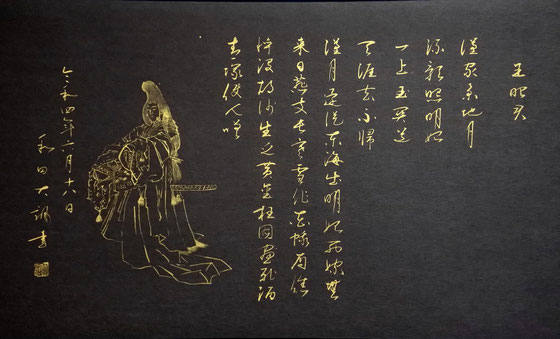 王昭君
漢家秦地月
流影照明妃
一上玉關道
天涯去不歸
漢月還從東海出明妃西嫁無
来日燕支長寒雪作花蛾眉憔
悴没胡沙生乏黄金枉圖畫死留
青塚使人嗟
令和四年二月十六日
和田大書